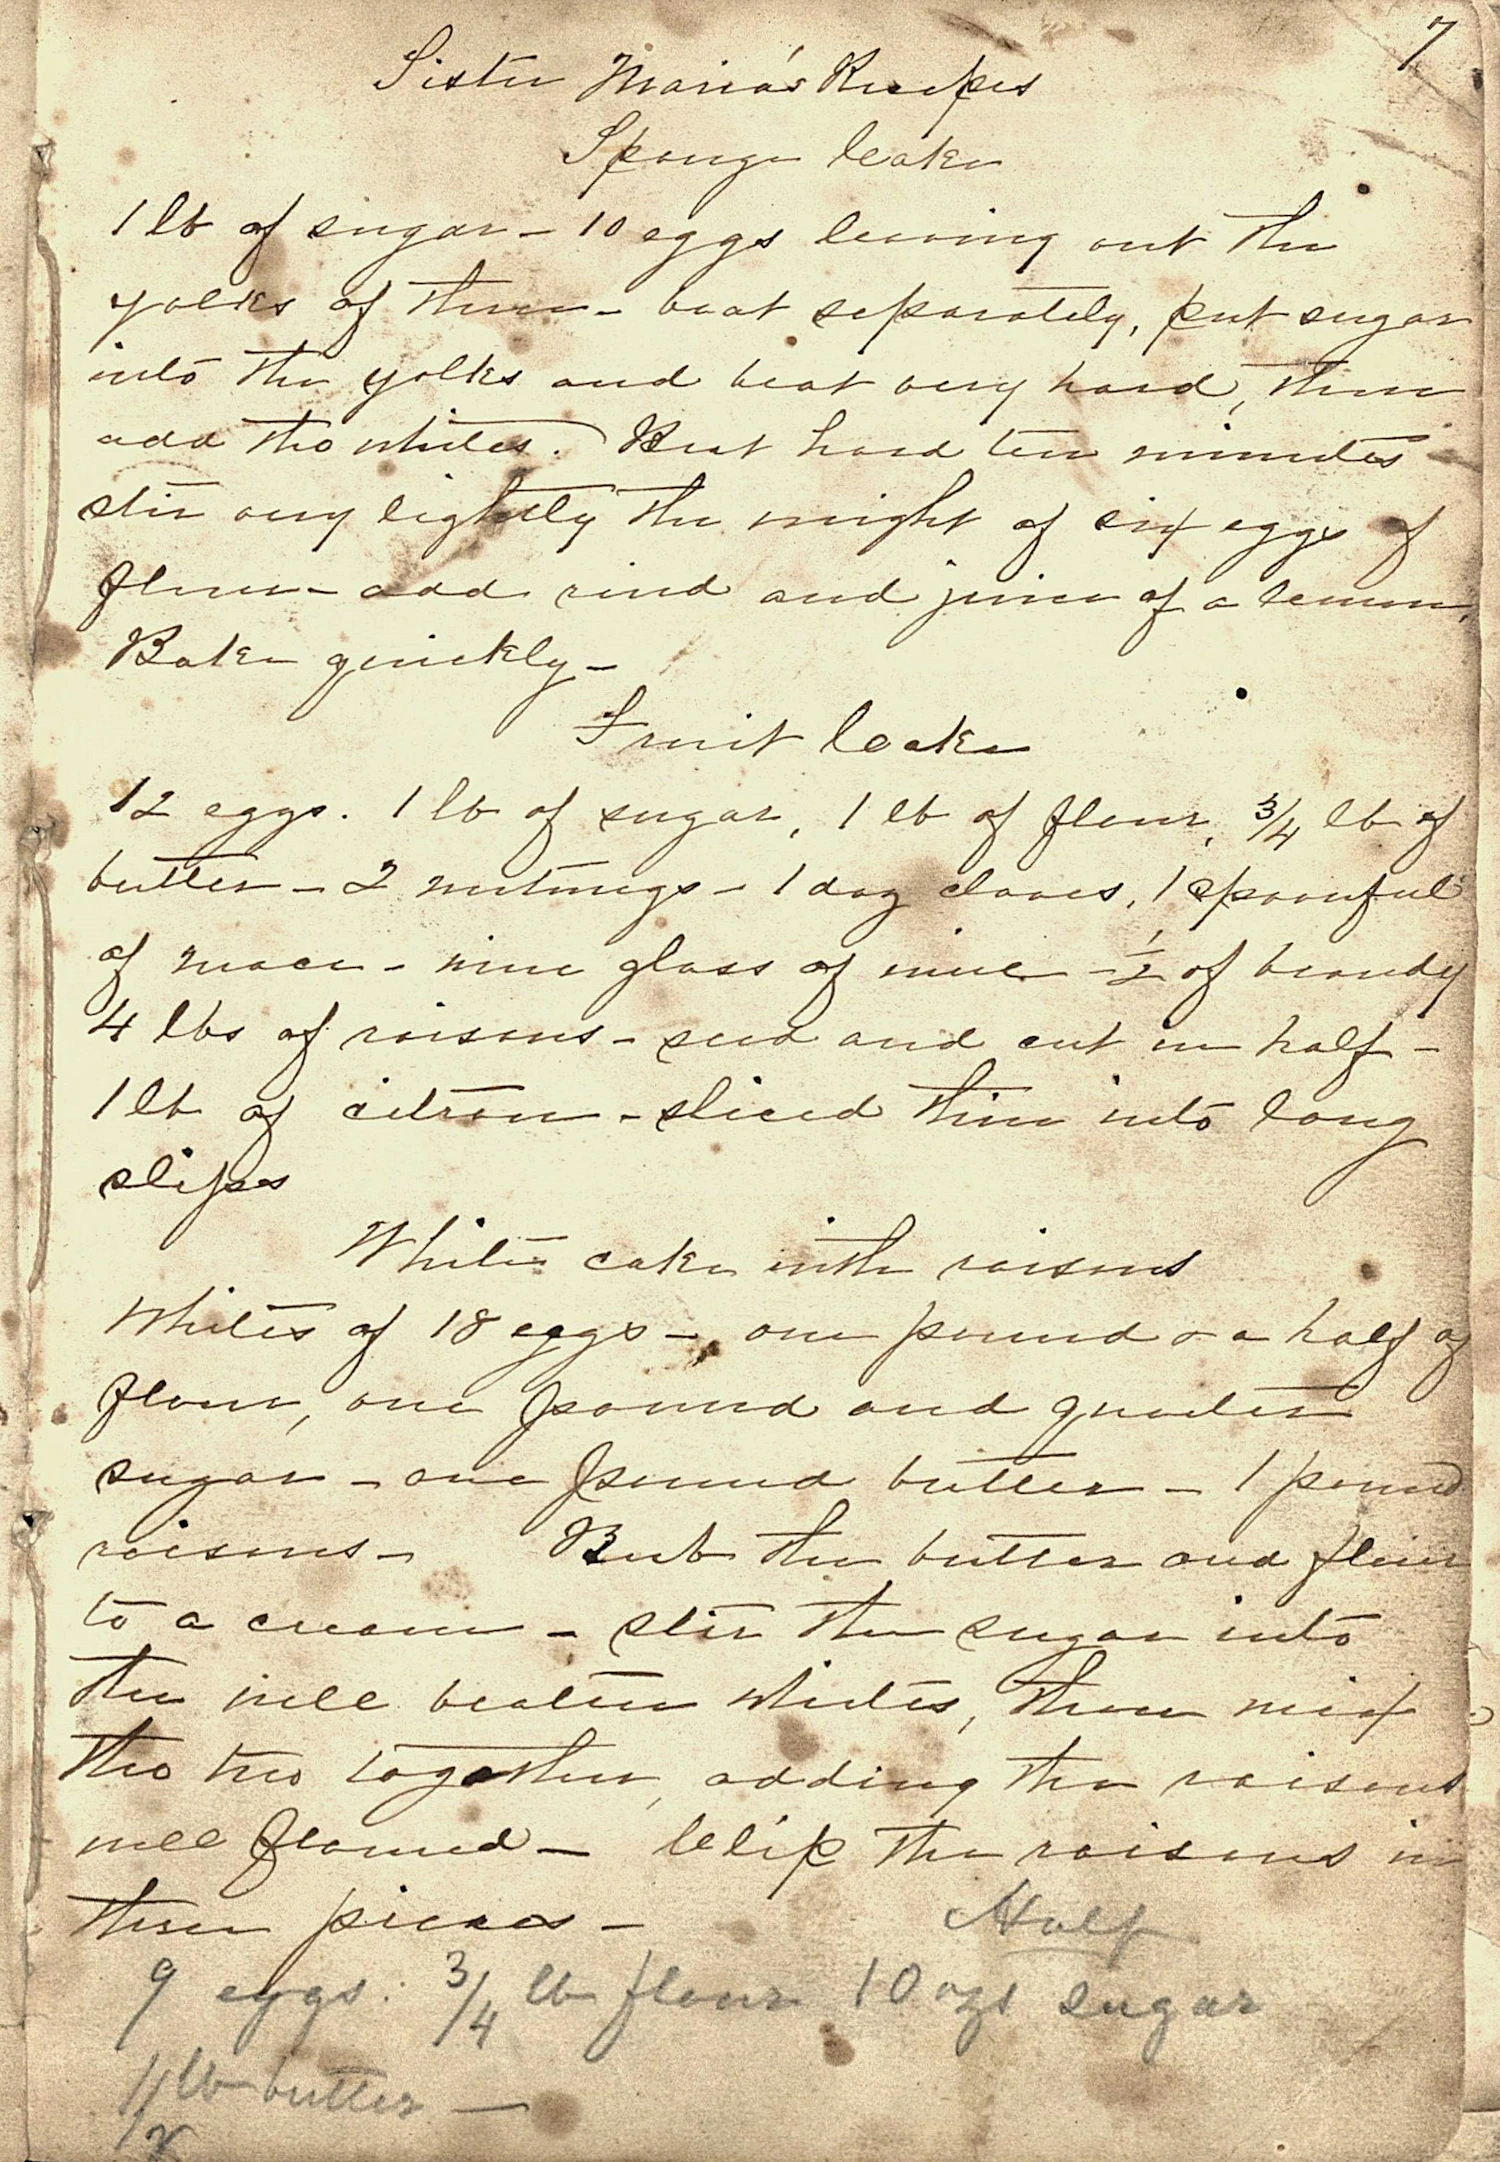 7
Sister Maria's Recipes
Sponge Cake
1 lb of sugar - 10 eggs leaving out the
yolks of three - beat separately, put sugar
into the yolks and beat very hard, then
add the whites. Beat hard ten minutes
stir very lightly the weight of six eggs of
flour - add rind and juice of a lemon,
Bake quickly -
Fruit Cake
12 eggs. 1 lb of sugar, 1 lb of flour, 3/4 lb of
butter - 2 nutmegs - 1 doz cloves, 1 spoonful
of mace - wine glass of wine - 1/2 of brandy
4 lbs of raisons - seed and cut in half -
1 lb of citron - sliced thin into long
slips
White cake with raisons
Whites of 18 eggs - one pound & a half of
flour, one pound and quarter
sugar - one pound butter - 1 pound
raisons - Rub the butter and flour
to a cream - stir the sugar into
the well beaten whites, then mix
the two together, adding the raisons
well floured - Clip the raisons in
three pieces -
Half
9 eggs. 3/4 lb flour 10 ozs sugar
1/2 lb butter -